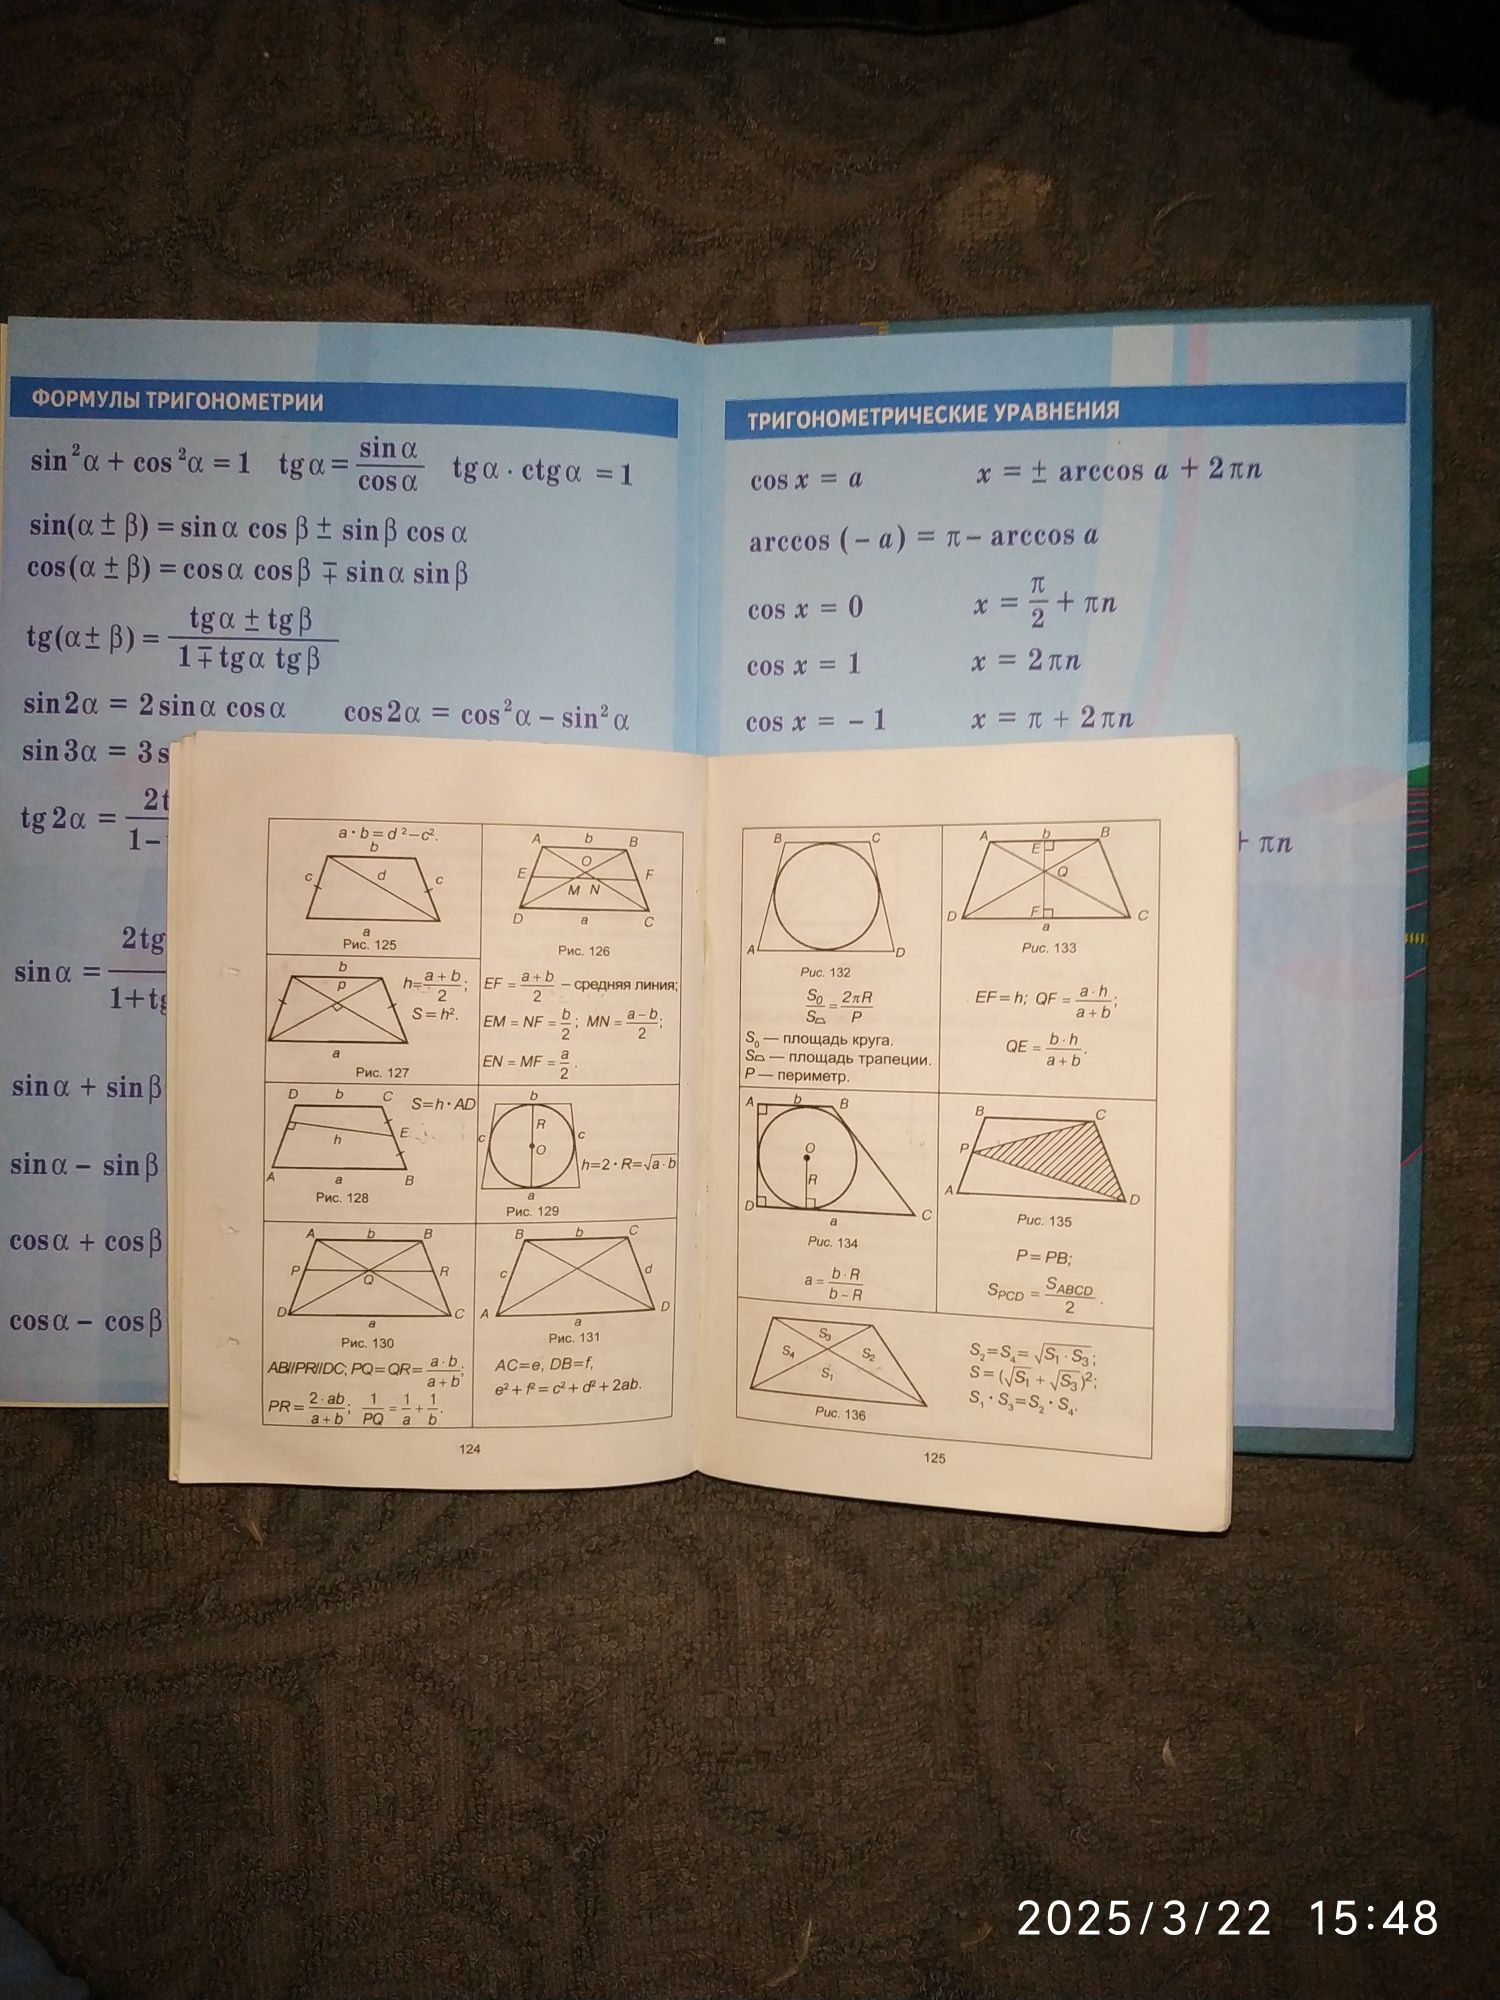 ФОРМУЛЫ ТРИГОНОМЕТРИИ
sin²α + cos²α = 1 tgα = sinα/cosα tgα · ctgα = 1
sin(α ± β) = sinα cosβ ± sinβ cosα
cos(α ± β) = cosα cosβ ∓ sinα sinβ
tg(α ± β) = (tgα ± tgβ)/(1 ∓ tgα tgβ)
sin2α = 2sinα cosα cos2α = cos²α − sin²α
sin3α = 3s
tg2α = 2t/1−
sinα = 2tg/1+tg
sinα + sinβ
sinα − sinβ
cosα + cosβ
cosα − cosβ
ТРИГОНОМЕТРИЧЕСКИЕ УРАВНЕНИЯ
cos x = a x = ± arccos a + 2πn
arccos (− a) = π − arccos a
cos x = 0 x = π/2 + πn
cos x = 1 x = 2πn
cos x = − 1 x = π + 2πn
+ πn
a · b = d² − c².
b
c d c
a
Рис. 125
A b B
O
E F
M N
D a C
Рис. 126
EF = (a + b)/2 — средняя линия;
EM = NF = b/2; MN = (a − b)/2;
EN = MF = a/2.
b
p
a
h = (a + b)/2;
S = h².
Рис. 127
D b C
h E
A a B
S = h · AD
Рис. 128
b
R
c O c
a
h = 2 · R = √(a · b)
Рис. 129
A b B
P Q R
D a C
Рис. 130
AB//PR//DC; PQ = QR = (a · b)/(a + b);
PR = (2 · ab)/(a + b); 1/PQ = 1/a + 1/b.
B b C
c d
A a D
Рис. 131
AC = e, DB = f,
e² + f² = c² + d² + 2ab.
124
B C
A D
Рис. 132
S₀/S⏢ = 2πR/P
S₀ — площадь круга.
S⏢ — площадь трапеции.
P — периметр.
A b B
E
Q
D F C
a
Рис. 133
EF = h; QF = (a · h)/(a + b);
QE = (b · h)/(a + b).
A b B
O
R
D a C
Рис. 134
a = (b · R)/(b − R)
B C
P
A D
Рис. 135
P = PB;
S_PCD = S_ABCD/2.
S₃
S₄ S₂
S₁
Рис. 136
S₂ = S₄ = √(S₁ · S₃);
S = (√S₁ + √S₃)²;
S₁ · S₃ = S₂ · S₄.
125
2025/3/22 15:48